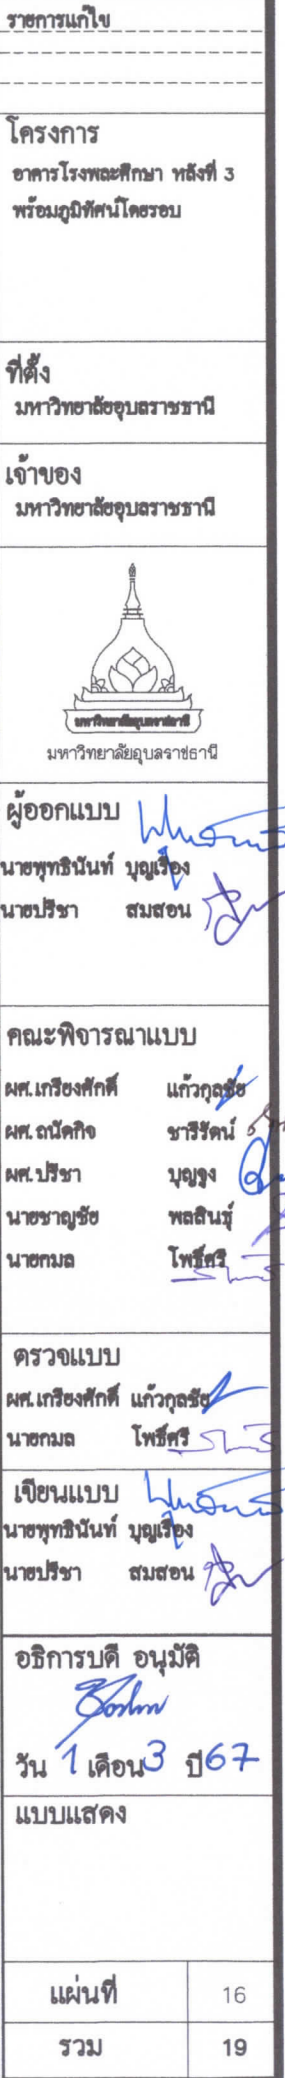 รายการแก้ไข
โครงการ
อาคารโรงพละศึกษา หลังที่ 3
พร้อมภูมิทัศน์โดยรอบ
ที่ตั้ง
มหาวิทยาลัยอุบลราชธานี
เจ้าของ
มหาวิทยาลัยอุบลราชธานี
มหาวิทยาลัยอุบลราชธานี
มหาวิทยาลัยอุบลราชธานี
ผู้ออกแบบ
นายพุทธินันท์ บุญเรือง
นายปรีชา สมสอน
คณะพิจารณาแบบ
ผศ.เกรียงศักดิ์ แก้วกุลชัย
ผศ.ถนัดกิจ ชารีรัตน์
ผศ.ปรีชา บุญจูง
นายชาญชัย พลสินธุ์
นายกมล โพธิ์ศรี
ตรวจแบบ
ผศ.เกรียงศักดิ์ แก้วกุลชัย
นายกมล โพธิ์ศรี
เขียนแบบ
นายพุทธินันท์ บุญเรือง
นายปรีชา สมสอน
อธิการบดี อนุมัติ
วัน 1 เดือน 3 ปี 67
แบบแสดง
แผ่นที่ 16
รวม 19